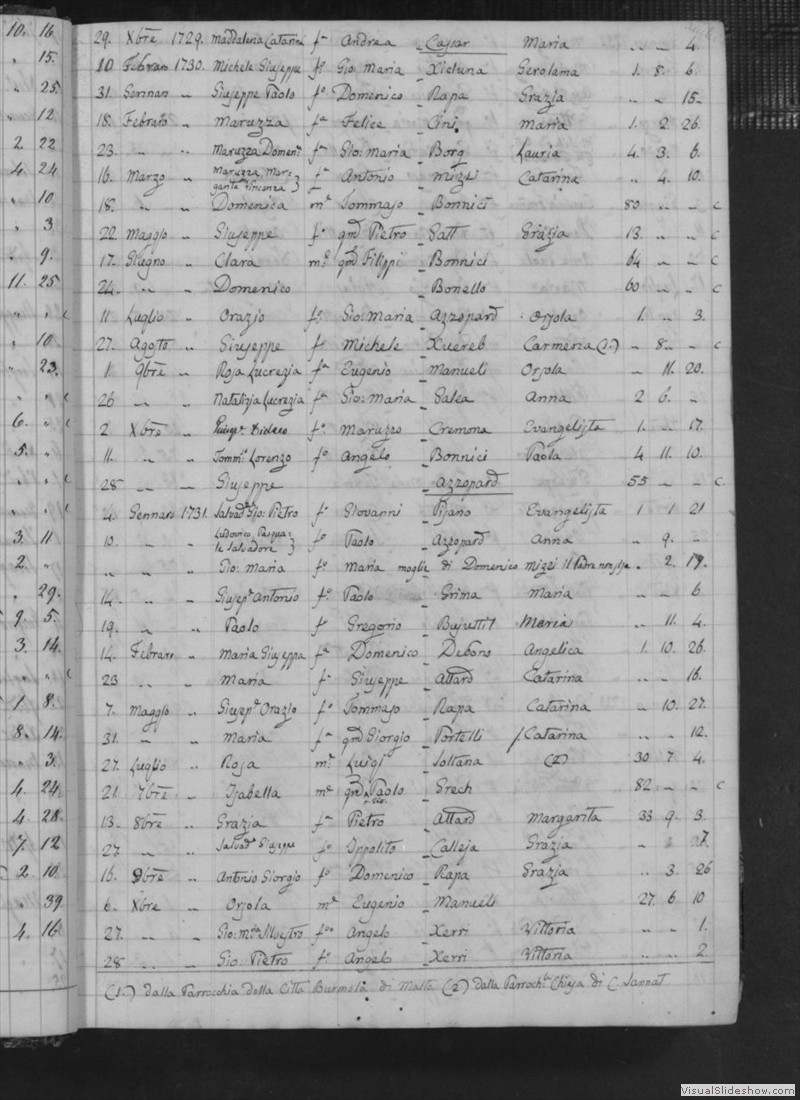 10. 16
" 15.
" 25
" 12
2. 22
4. 24
" 10
" 3
" 9.
11. 25
" " c
" 10
" 23.
" " c
6. " c
5. " c
" " c
3. 11
2. "
" 29.
9. 5.
3. 14.
" " c
1 8.
8. 14.
" 3.
4. 24
4. 28.
7. 12
2. 10
" 39
4. 16
29. Xbre 1729. Maddalena Catarina fa Andrea _ Cassar Maria " " 4.
10 Febraro 1730. Michele Giuseppe fo Gio: Maria _ Xicluna Gerolama 1. 8. 6.
31. Gennaro " Giuseppe Paolo fo Domenico _ Rapa Grazia " " 15.
18. Febraro " Maruzza fa Felice _ Cini Maria 1. 2. 26.
23. " " Maruzza Domenca fa Gio: Maria _ Borg Lauria 4. 3. 6.
16. Marzo " Maruzza, Margarita Vincenza } fa Antonio _ Mizzi Catarina " 4. 10.
18. " " Domenica me Tommaso _ Bonnici 80 " " c
22. Maggio " Giuseppe fo qm Pietro _ Gatt Grazia 13. " " c
17. Giugno " Clara me qm Filippi _ Bonnici 64 " " c
24. " " Domenico _ Bonello 60 " " c
11. Luglio " Orazio fo Gio: Maria _ Azzopard Orsola 1. " 3.
27. Agosto " Giuseppe fo Michele _ Xuereb Carmena (1.) " 8. " c
1. 9bre " Rosa Lucrezia fa Eugenio _ Manueli Orsola " 11. 20.
26 " " Natalizia Lucrezia fa Gio: Maria _ Galea Anna 2 6. "
2 Xbre " fo Maruzzo _ Cremona Evangelista 1. " 17.
11. " " Tommo Lorenzo fo Angelo _ Bonnici Paola 4 11. 10.
28 " " Giuseppe _ Azzopard 55 " " c.
4. Gennaro 1731. Salvadre Gio: Pietro fo Giovanni _ Pisano Evangelista 1 1 21
10. " " Ludovico, Pasquale Salvadore } fo Paolo _ Azzopard Anna " 9. "
" " " Gio: Maria fo Maria moglie di Domenico Mizzi il Padre " 2. 19.
14. " " Giusepe Antonio fo Paolo _ Grima Maria " " 6.
19. " " Paolo fo Gregorio _ Bajuttil Maria " 11. 4.
14. Febraro " Maria Giuseppa fa Domenico _ Debono Angelica 1. 10. 26.
23 " " Maria fa Giuseppe _ Attard Catarina " " 16.
7. Maggio " Giusepe Orazio fo Tommaso _ Rapa Catarina " 10. 27.
31. " " Maria fa qm Giorgio _ Portelli Catarina " " 12.
27. Luglio " Rosa me Luigi _ Soltana (2) 30 7 4.
21. 7bre " Isabella me qm Paolo _ Grech 82. " " c
13. 8bre " Grazia fa Pietro _ Attard Margarita 33 9. 3.
27. " " Salvadre Giuseppe fo Ippolito _ Calleja Grazia " 27.
16. 9bre " Antonio Giorgio fo Domenico _ Rapa Grazia " 3. 26
6. Xbre " Orsola me Eugenio _ Manueli 27. 6 10
27. " " Gio: Ma Silvestro fo Angelo _ Xerri Vittoria " " 1.
28 " " Gio: Pietro fo Angelo _ Xerri Vittoria " " 2.
(1.) dalla Parrocchia della Città Burmola di Malta (2) dalla Parrochle Chiesa di C. Sannat
VisualSlideshow.com